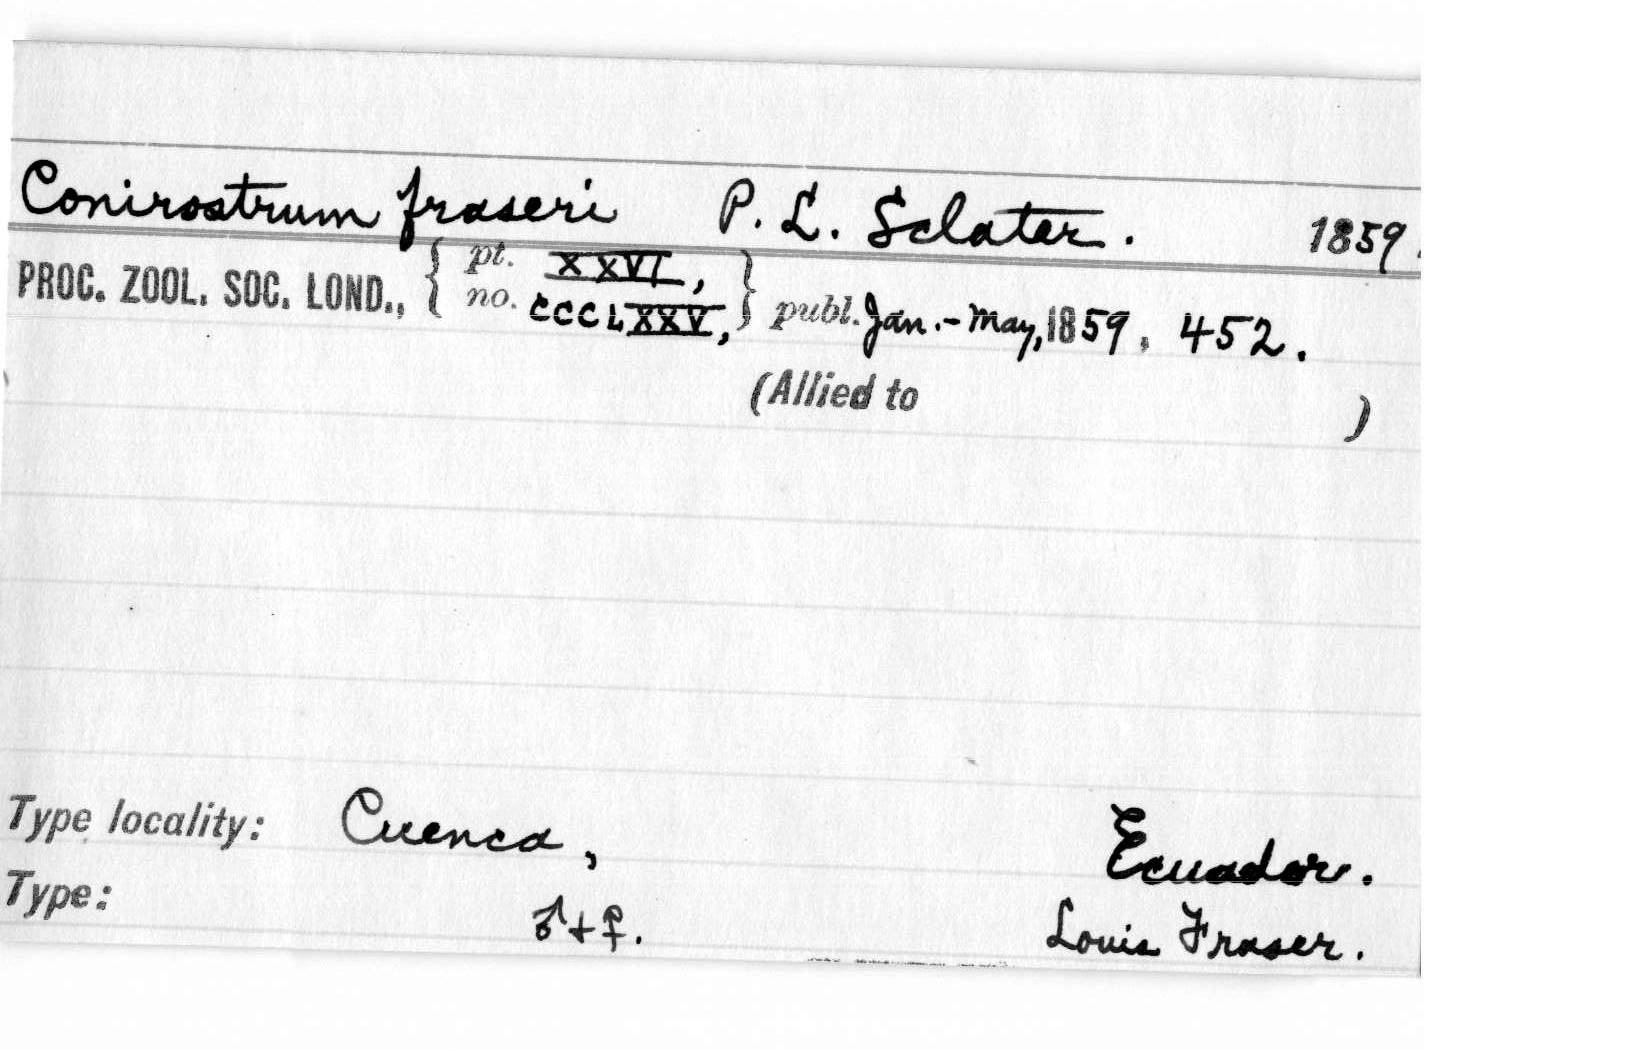 Conirostrum fraseri P. L. Sclater. 1859.
PROC. ZOOL. SOC. LOND., { pt. XXVI, } publ. Jan.-May, 1859, 452.
no. CCCLXXV,
(Allied to )
Type locality: Cuenca, Ecuador.
Type: ♂+♀. Louis Fraser.